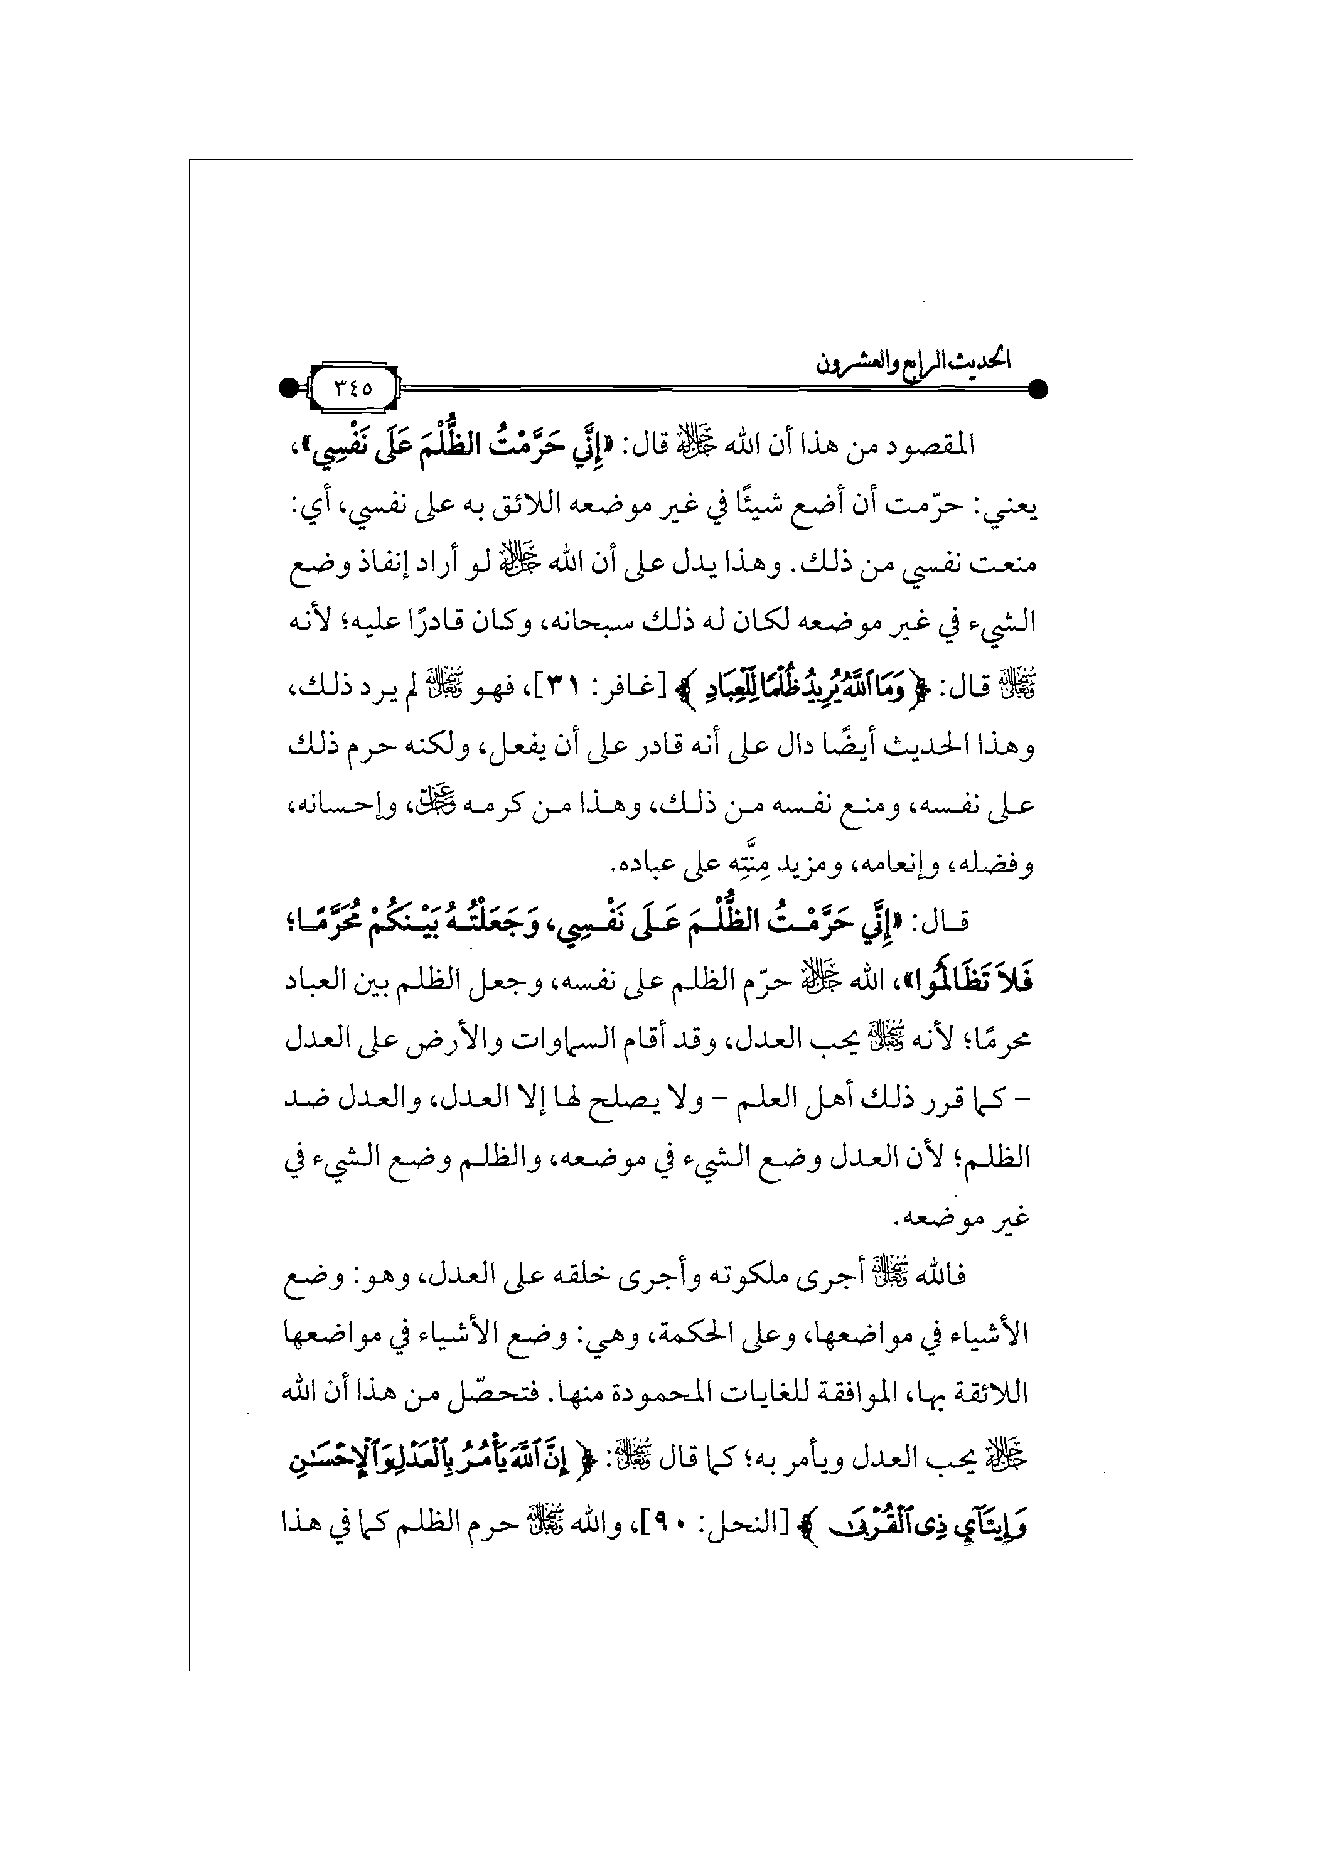 الحديث الرابع والعشرون
٣٤٥
المقصود من هذا أن الله ﷻ قال: «إِنِّي حَرَّمْتُ الظُّلْمَ عَلَى نَفْسِي»،
يعني: حرّمت أن أضع شيئًا في غير موضعه اللائق به على نفسي، أي:
منعت نفسي من ذلك. وهذا يدل على أن الله ﷻ لو أراد إنفاذ وضع
الشيء في غير موضعه لكان له ذلك سبحانه، وكان قادرًا عليه؛ لأنه
قال: ﴿وَمَا ٱللَّهُ يُرِيدُ ظُلْمًا لِّلْعِبَادِ﴾ [غافر: ٣١]، فهو لم يرد ذلك،
وهذا الحديث أيضًا دال على أنه قادر على أن يفعل، ولكنه حرم ذلك
على نفسه، ومنع نفسه من ذلك، وهذا من كرمه عَزَّوَجَلَّ، وإحسانه،
وفضله، وإنعامه، ومزيد مِنَّتِه على عباده.
قال: «إِنِّي حَرَّمْتُ الظُّلْمَ عَلَى نَفْسِي، وَجَعَلْتُهُ بَيْنَكُمْ مُحَرَّمًا؛
فَلاَ تَظَالَمُوا»، الله ﷻ حرّم الظلم على نفسه، وجعل الظلم بين العباد
محرمًا؛ لأنه يحب العدل، وقد أقام السماوات والأرض على العدل
- كما قرر ذلك أهل العلم - ولا يصلح لها إلا العدل، والعدل ضد
الظلم؛ لأن العدل وضع الشيء في موضعه، والظلم وضع الشيء في
غير موضعه.
فالله أجرى ملكوته وأجرى خلقه على العدل، وهو: وضع
الأشياء في مواضعها، وعلى الحكمة، وهي: وضع الأشياء في مواضعها
اللائقة بها، الموافقة للغايات المحمودة منها. فتحصّل من هذا أن الله
ﷻ يحب العدل ويأمر به؛ كما قال: ﴿إِنَّ ٱللَّهَ يَأْمُرُ بِٱلْعَدْلِ وَٱلْإِحْسَـٰنِ
وَإِيتَآئِ ذِى ٱلْقُرْبَىٰ﴾ [النحل: ٩٠]، والله حرم الظلم كما في هذا